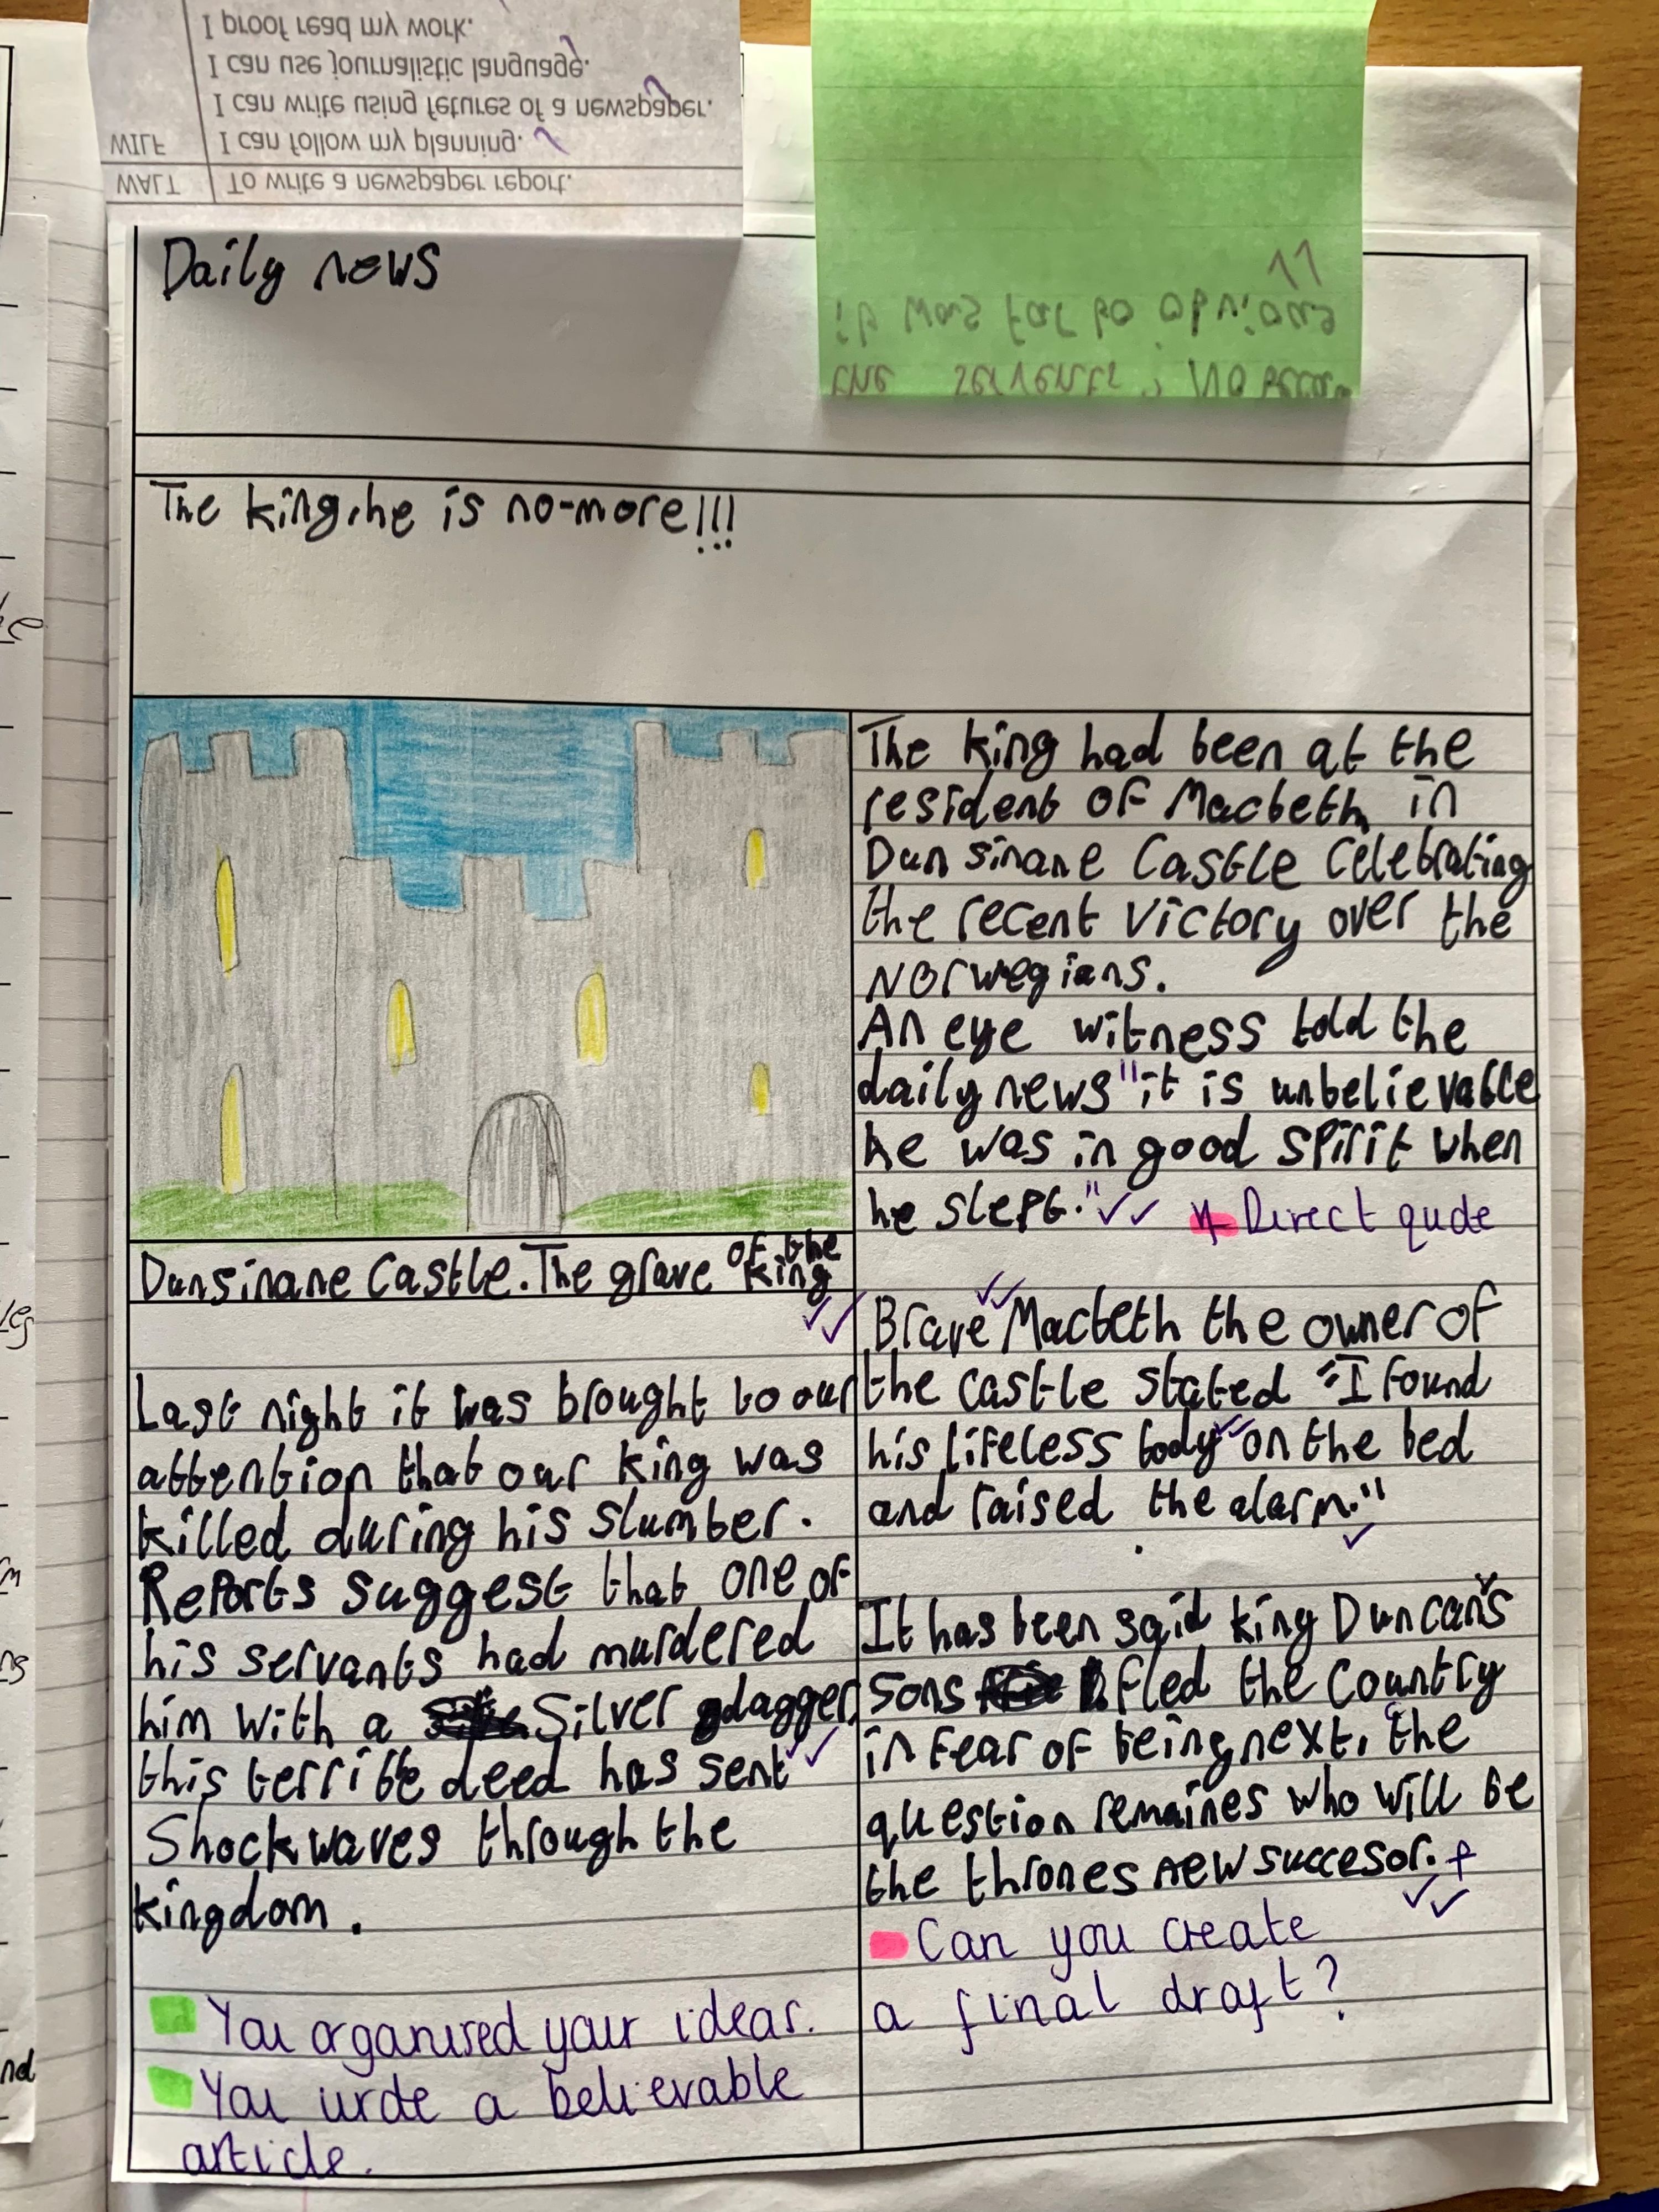 I proof read my work.
I can use journalistic language.
I can write using fetures of a newspaper.
WILF I can follow my planning.
WALT To write a newspaper report.
the servents, No
it was far to obvious
Daily news
The king, he is no-more!!!
Dunsinane Castle. The grave of the king
Last night it was brought to our
attention that our king was
killed during his slumber.
Reports suggest that one of
his servants had murdered
him with a Silver dagger,
this terrible deed has sent
Shockwaves through the
kingdom.
You organised your ideas.
You wrote a believable
article.
The king had been at the
resident of Macbeth in
Dunsinane Castle Celebrating
the recent victory over the
Norwegians.
An eye witness told the
daily news "it is unbelievable
he was in good spirit when
he slept."
Direct quote
Brave Macbeth the owner of
the castle stated "I found
his lifeless body on the bed
and raised the alarm."
It has been said king Duncan's
sons fled the Country
in fear of being next, the
question remaines who will be
the thrones new succesor.
Can you create
a final draft?